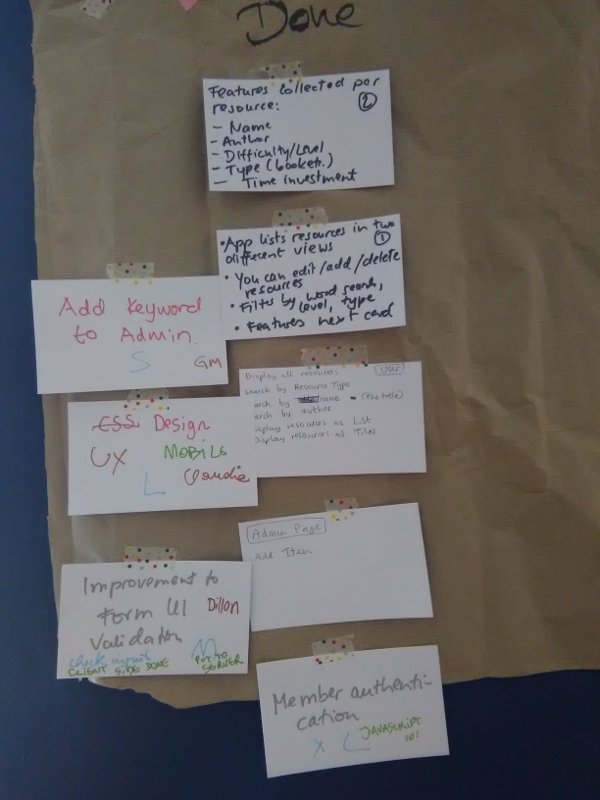 Done
Features collected per
resource: 2
- Name
- Author
- Difficulty/Level
- Type (book etc.)
- Time investment
• App lists resources in two
different views 1
• You can edit/add/delete
resources
• Filter by word search,
level, type
• Features next card
Add Keyword
to Admin.
S GM
Display all resources User
search by Resource Type
arch by name (the title)
arch by author
isplay resources as List
Display resources as Tiles
CSS Design
UX MOBILE
L Claudia
Admin Page
Add Item
Improvement to
Form UI Dillon
Validation
check inputs M PUT TO
CLIENT SIDE DONE SERVER
Member authenti-
cation
X L JAVASCRIPT